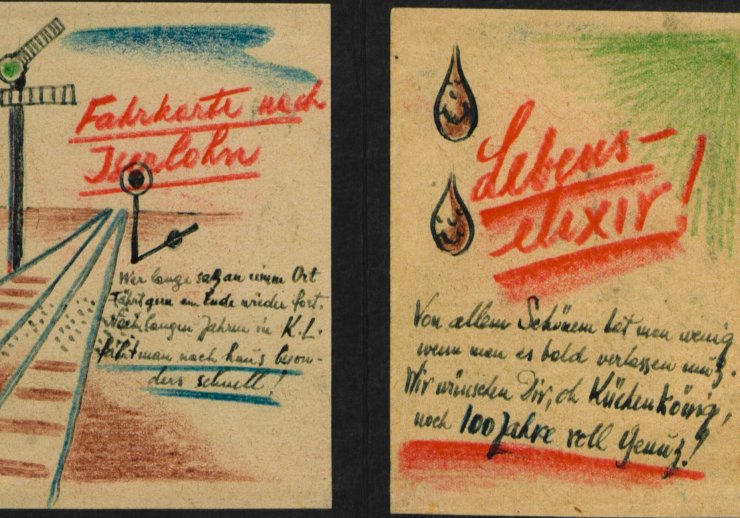 Fahrkarte nach
Iserlohn
Wer lange saß an einem Ort
fährt gern am Ende wieder fort.
Nach langen Jahren in K.L.
fährt man nach haus beson-
ders schnell!
Lebens-
elixir!
Von allem Schönem hat man wenig
wenn man es bald verlassen muß.
Wir wünschen Dir, oh Küchenkönig,
noch 100 Jahre voll Genuß!